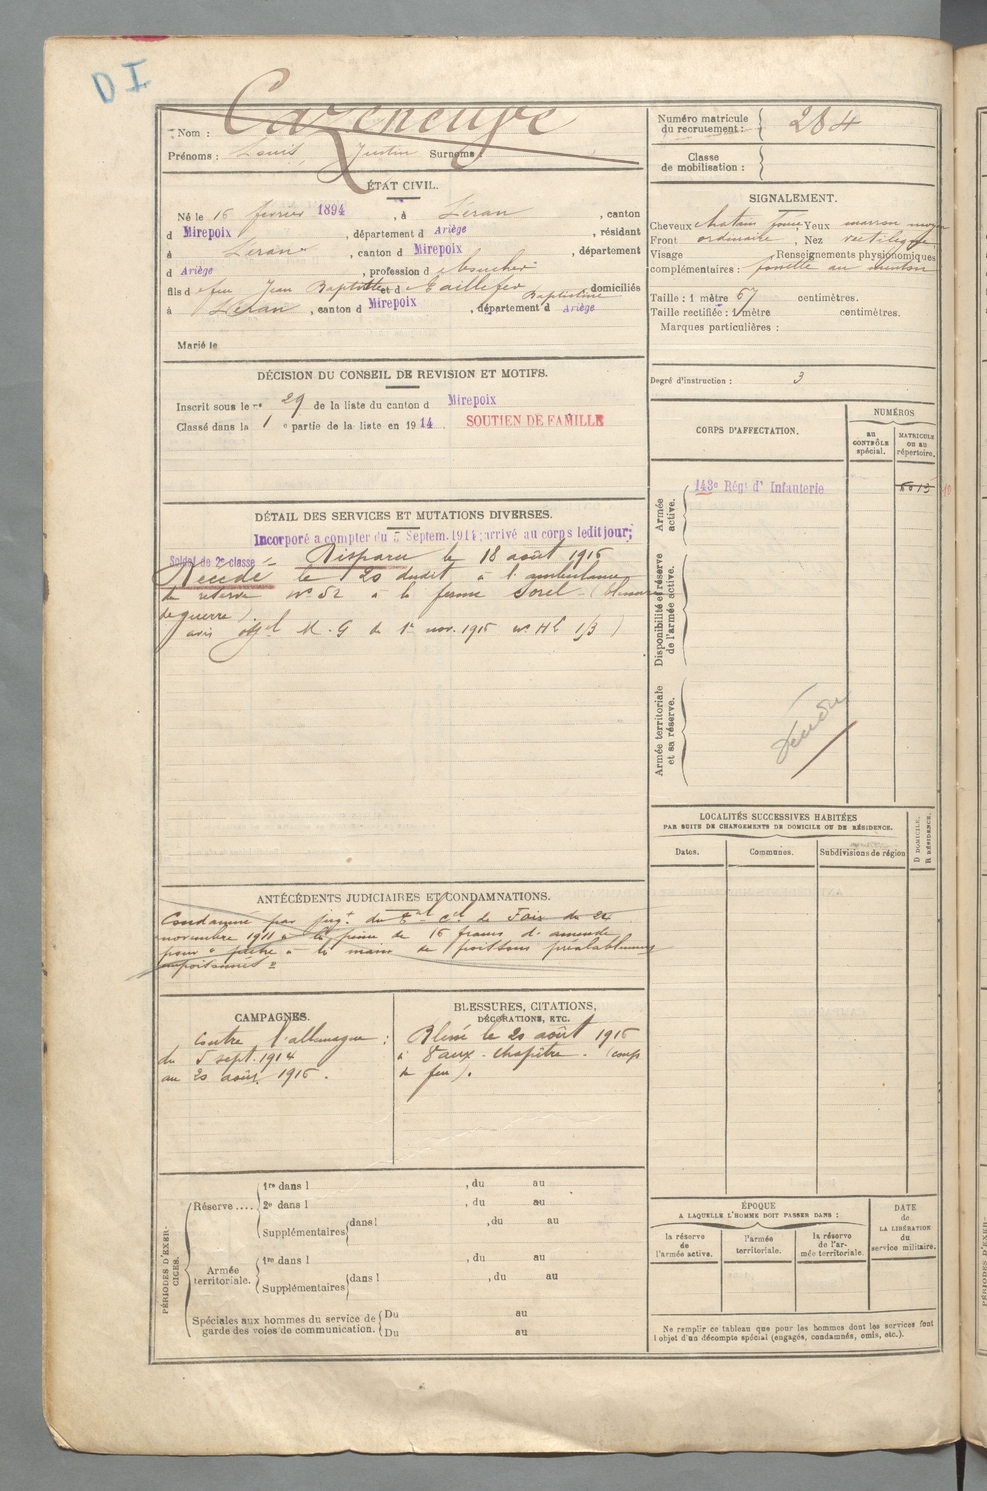 DI
Nom : Cazeneuve
Prénoms : Louis, Justin Surnoms :
Numéro matricule du recrutement : 284
Classe de mobilisation :
ÉTAT CIVIL.
Né le 16 février 1894, à Léran, canton
d Mirepoix, département d Ariège, résidant
à Léran, canton d Mirepoix, département
d Ariège, profession d
fils d feu Jean Baptiste et d Taillefer Baptistine domiciliés
à Léran, canton d Mirepoix, département d Ariège
Marié le
SIGNALEMENT.
Cheveux chatain foncé Yeux marron moyen
Front ordinaire, Nez rectiligne
Visage Renseignements physionomiques
complémentaires : fossette au menton
Taille : 1 mètre 67 centimètres.
Taille rectifiée : 1 mètre centimètres.
Marques particulières :
Degré d'instruction : 3
DÉCISION DU CONSEIL DE REVISION ET MOTIFS.
Inscrit sous le n° 29 de la liste du canton d Mirepoix
Classé dans la 1 e partie de la liste en 1914. SOUTIEN DE FAMILLE
CORPS D'AFFECTATION.
NUMÉROS
au CONTRÔLE spécial.
MATRICULE ou au répertoire.
Armée active.
143e Régt d' Infanterie
Disponibilité et réserve de l'armée active.
Armée territoriale et sa réserve.
DÉTAIL DES SERVICES ET MUTATIONS DIVERSES.
Incorporé a compter du 5 Septem. 1914; arrivé au corps ledit jour;
Soldat de 2e classe Disparu le 18 août 1916
Décédé le 20 dudit à l'ambulance
de reserve N° 52 à la ferme Sorel (blessures
de guerre).
avis M. G du 1er nov. 1916
LOCALITÉS SUCCESSIVES HABITÉES
PAR SUITE DE CHANGEMENTS DE DOMICILE OU DE RÉSIDENCE.
Dates.
Communes.
Subdivisions de région
D DOMICILE.
R RÉSIDENCE.
ANTÉCÉDENTS JUDICIAIRES ET CONDAMNATIONS.
Condamné par jugt du de Foix du 24
novembre 1911 à la peine de 16 francs d'amende
pour " pêche à la main de poissons préalablement
empoisonnés "
CAMPAGNES.
Contre l'allemagne :
du 5 sept. 1914
au 20 août 1916.
BLESSURES, CITATIONS,
DÉCORATIONS, ETC.
Blessé le 20 août 1916
à Vaux-Chapitre. (coup
de feu).
PÉRIODES D'EXERCICES.
Réserve ....
1re dans l , du au
2e dans l , du au
Supplémentaires dans l , du au
Armée territoriale.
1re dans l , du au
Supplémentaires dans l , du au
Spéciales aux hommes du service de garde des voies de communication.
Du au
Du au
ÉPOQUE
A LAQUELLE L'HOMME DOIT PASSER DANS :
la réserve de l'armée active.
l'armée territoriale.
la réserve de l'armée territoriale.
DATE de LA LIBÉRATION du service militaire.
Ne remplir ce tableau que pour les hommes dont les services font
l'objet d'un décompte spécial (engagés, condamnés, omis, etc.).